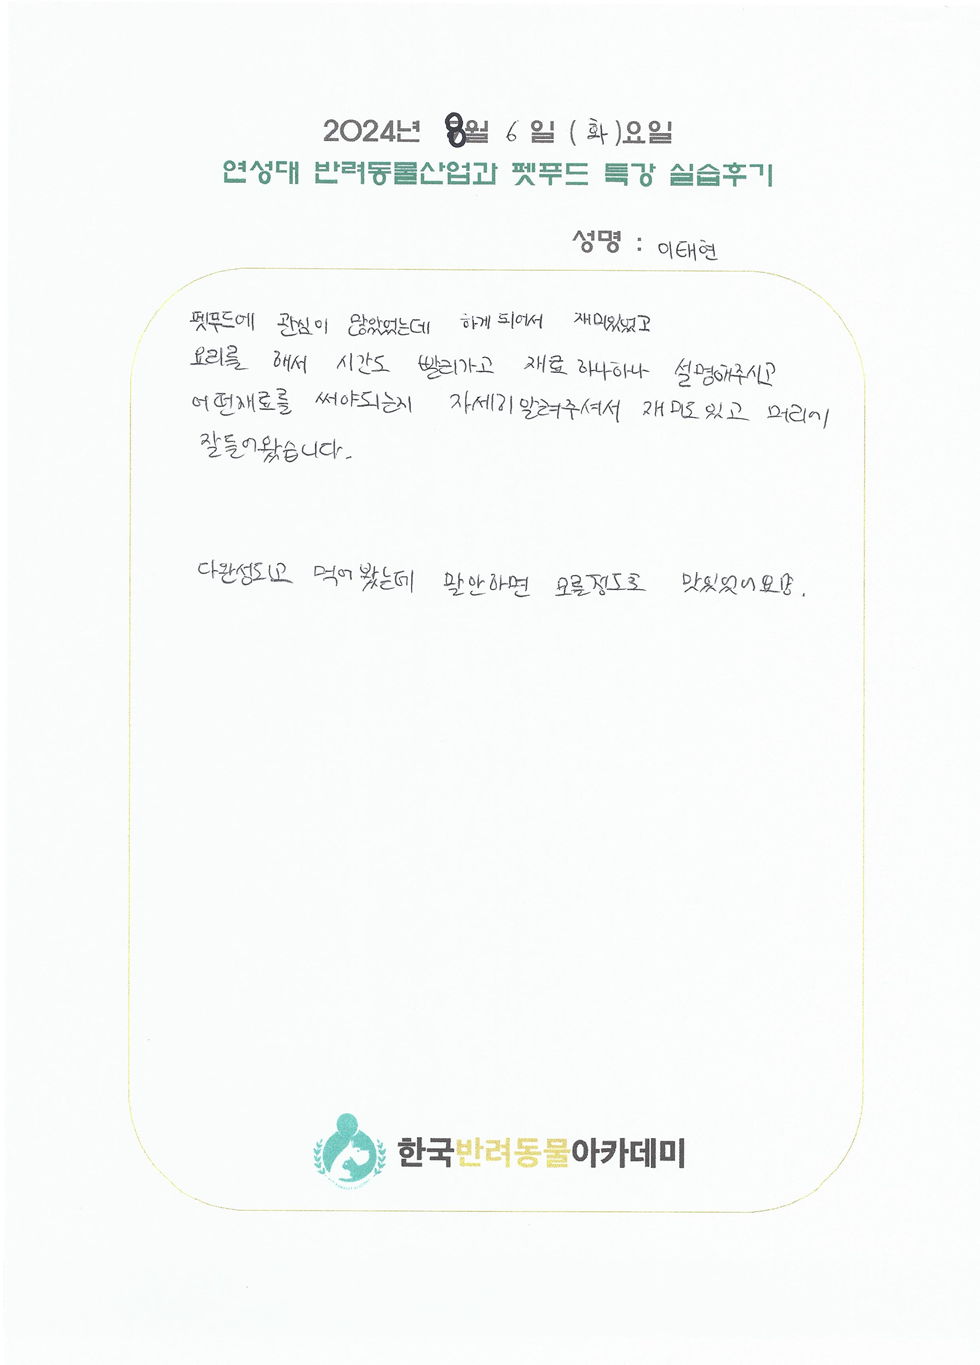 2024년 8월 6일 (화)요일
연성대 반려동물산업과 펫푸드 특강 실습후기
성명 : 이태현
펫푸드에 관심이 많았었는데 하게 되어서 재미있었고
요리를 해서 시간도 빨리가고 재료 하나하나 설명해주시고
어떤재료를 써야되는지 자세히 알려주셔서 재미도 있고 머리에
잘들어왔습니다.
다완성되고 먹어봤는데 말안하면 모를정도로 맛있었어요.
한국반려동물아카데미